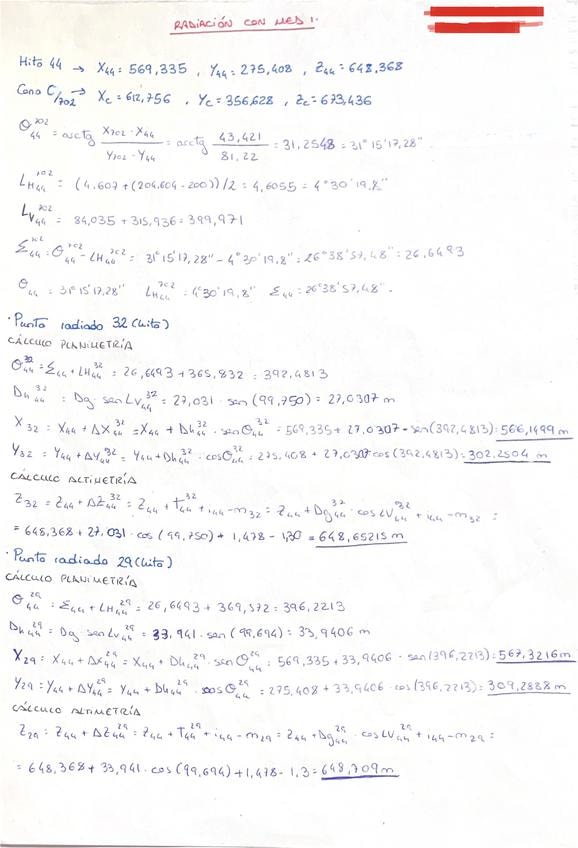 RADIACIÓN CON MED 1.
Hito 44 → X44 = 569,335 , Y44 = 275,408 , Z44 = 648,368
Cono C/702 → Xc = 612,756 , Yc = 356,628 , Zc = 673,436
θ44^702 = arctg (X702 - X44)/(Y702 - Y44) = arctg 43,421/81,22 = 31,2548 = 31° 15' 17,28''
LH44^702 = (4,607 + (204,604 - 200))/2 = 4,6055 = 4° 30' 19,8''
LV44^702 = 84,035 + 315,936 = 399,971
Σ44^702 = θ44^702 - LH44^702 = 31° 15' 17,28'' - 4° 30' 19,8'' = 26° 38' 57,48'' = 26,6493
θ44 = 31° 15' 17,28'' LH44^702 = 4° 30' 19,8'' Σ44 = 26° 38' 57,48''.
· Punto radiado 32 (hito)
CÁLCULO PLANIMETRÍA
θ44^32 = Σ44 + LH44^32 = 26,6493 + 365,832 = 392,4813
Dh44^32 = Dg · sen LV44^32 = 27,031 · sen (99,750) = 27,0307 m
X32 = X44 + ΔX44^32 = X44 + Dh44^32 · sen θ44^32 = 569,335 + 27,0307 · sen (392,4813) = 566,1499 m
Y32 = Y44 + ΔY44^32 = Y44 + Dh44^32 · cos θ44^32 = 275,408 + 27,0307 cos (392,4813) = 302,2504 m
CÁLCULO ALTIMETRÍA
Z32 = Z44 + ΔZ44^32 = Z44 + T44^32 + i44 - m32 = Z44 + Dg44^32 · cos LV44^32 + i44 - m32 =
= 648,368 + 27,031 · cos (99,750) + 1,478 - 1,30 = 648,65215 m
· Punto radiado 29 (hito)
CÁLCULO PLANIMETRÍA
θ44^29 = Σ44 + LH44^29 = 26,6493 + 369,572 = 396,2213
Dh44^29 = Dg · sen LV44^29 = 33,941 · sen (99,694) = 33,9406 m
X29 = X44 + ΔX44^29 = X44 + Dh44^29 · sen θ44^29 = 569,335 + 33,9406 · sen (396,2213) = 567,3216 m
Y29 = Y44 + ΔY44^29 = Y44 + Dh44^29 · cos θ44^29 = 275,408 + 33,9406 · cos (396,2213) = 309,2888 m
CÁLCULO ALTIMETRÍA
Z29 = Z44 + ΔZ44^29 = Z44 + T44^29 + i44 - m29 = Z44 + Dg44^29 · cos LV44^29 + i44 - m29 =
= 648,368 + 33,941 · cos (99,694) + 1,478 - 1,3 = 648,709 m